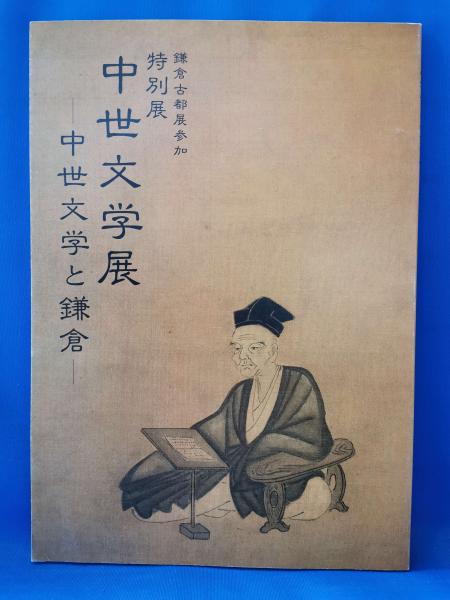 鎌倉古都展参加
特別展
中世文学展
―中世文学と鎌倉―